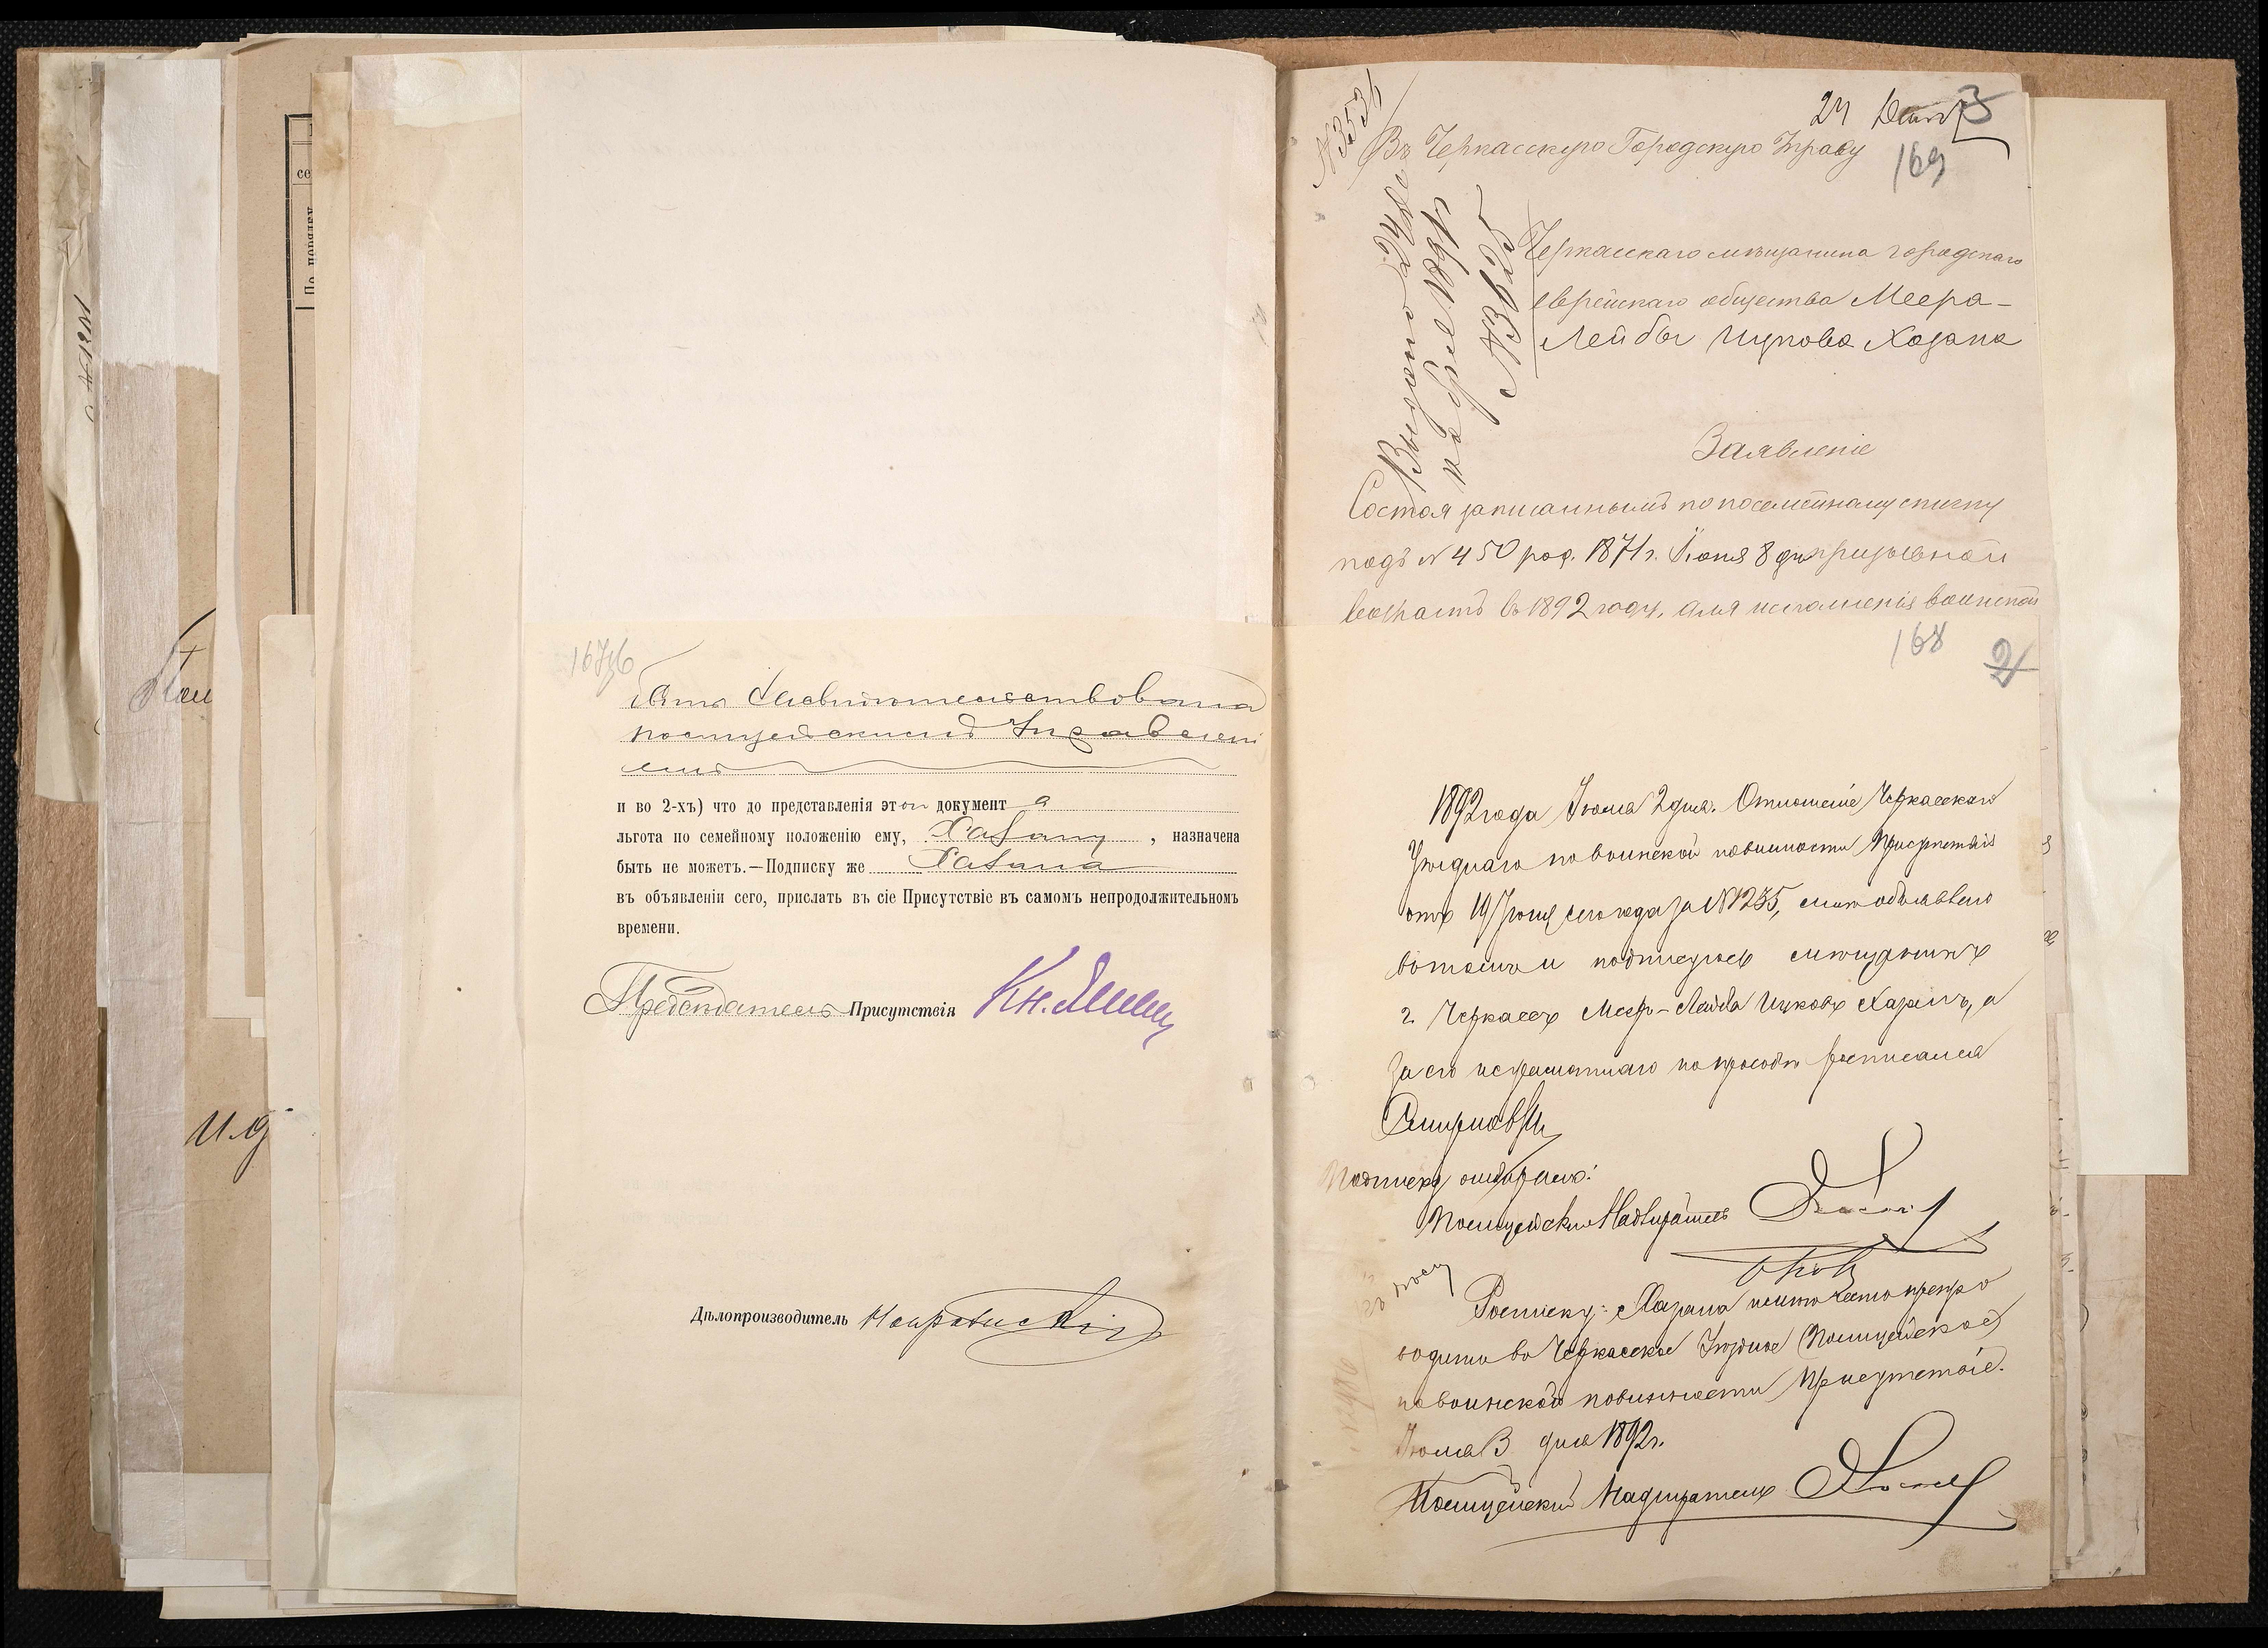 быть засвидѣтельствована
полицейскимъ Управлені
емъ
и во 2-хъ) что до представленія этой документа
льгота по семейному положенію ему, Хазану, назначена
быть не можетъ.—Подписку же Хазана
въ объявленіи сего, прислать въ сіе Присутствіе въ самомъ непродолжительномъ
времени.
Предсѣдатель Присутствія Кн.
Дѣлопроизводитель
И.д
По порядку
се
24
№3531
Въ Черкасскую Городскую Управу
169
Выдано 24
ноября 1891 г.
№3625
Черкасскаго мѣщанина городскаго
еврейскаго общества Меера-
Лейбы Ицкова Хазана
Заявленіе
Состоя записаннымъ по посемейному списку
подъ № 450 род. 1871 г. Іюня 8 дня призывной
возрастъ въ 1892 году, для исполненія воинской
168
2
1892 года Іюля 2 дня. Отношеніе Черкасскаго
Уѣзднаго по воинской повинности Присутствія
отъ 19 Іюня сего года за №1235, мнѣ объявлено
въ томъ и подписуюсь мѣщанинъ
г. Черкассъ Меер-Лейба Ицковъ Хазанъ, а
за его неграмотнаго по просьбѣ росписался
Подписку отбиралъ:
Полицейскій Надзиратель
Росписку Хазана препро
водить въ Черкасское Уѣздное Полицейское
по воинской повинности Присутствіе.
Іюля 3 дня 1892 г.
Полицейскій Надзиратель